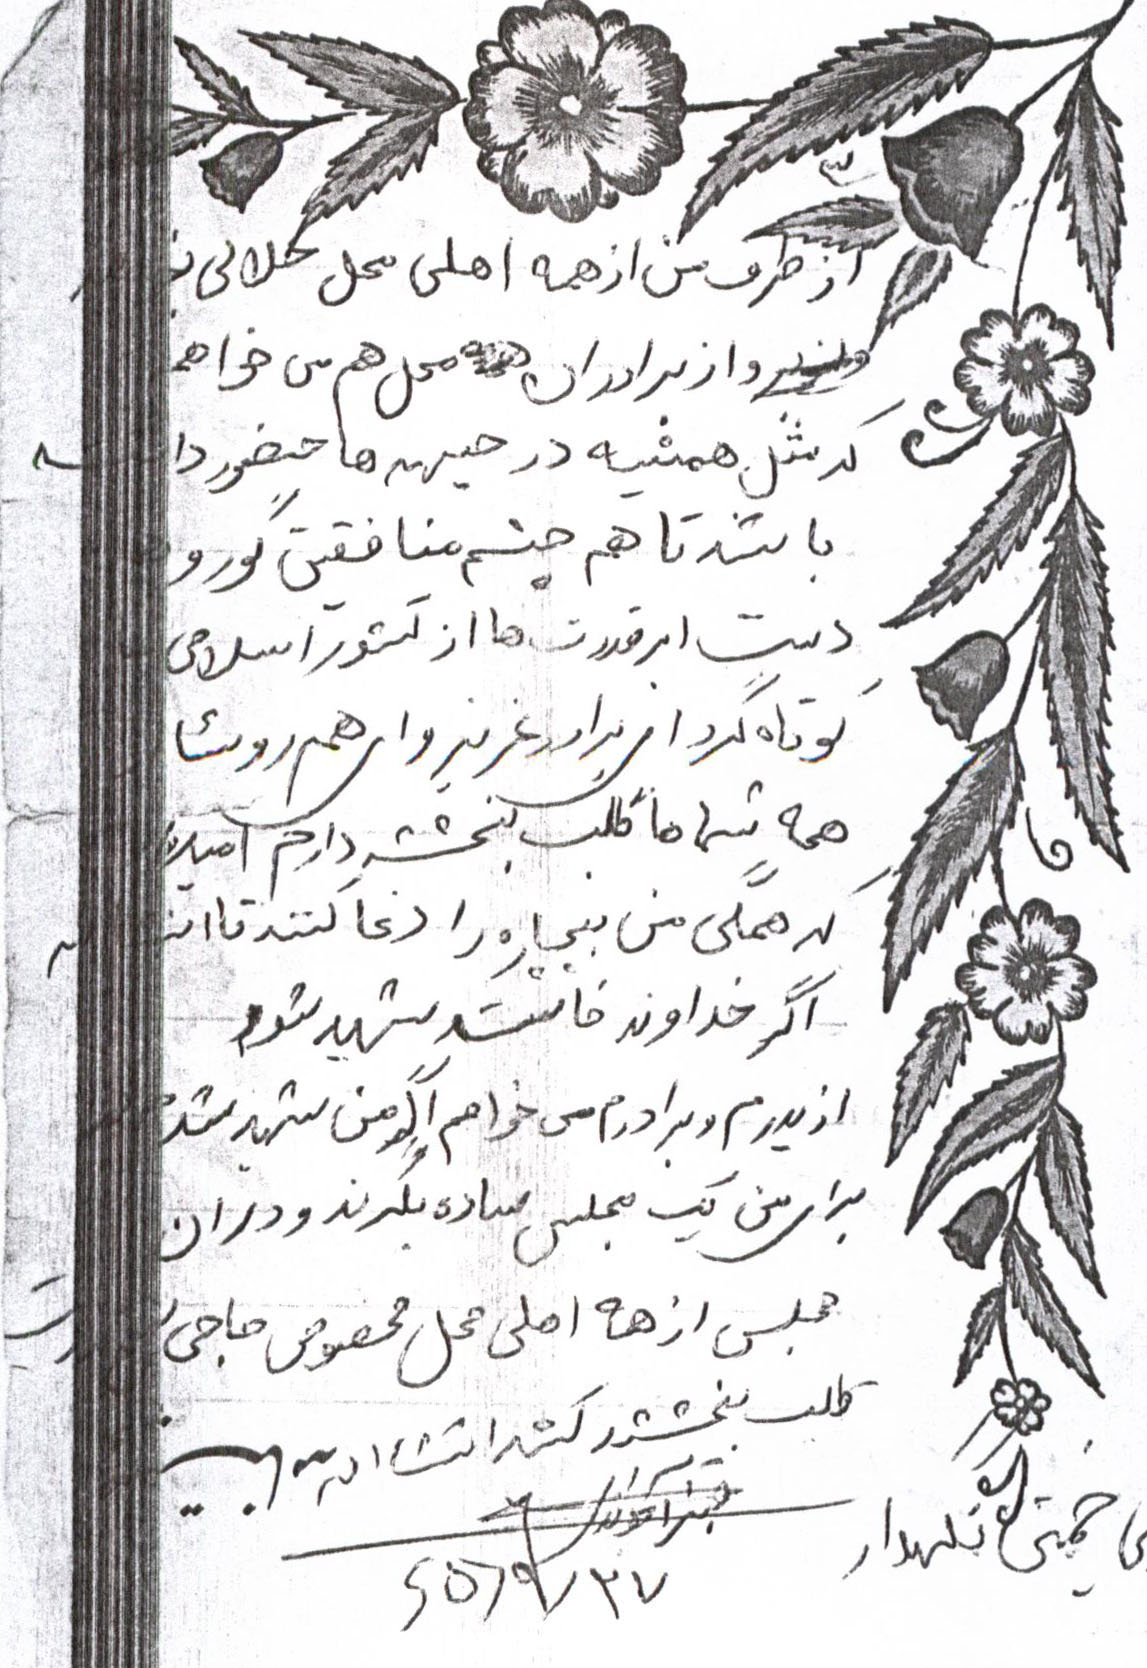 ۳
از طرف من از همه اهلی محل حلالی
و از برادران محل هم می خواهم
که مثل همشیه در جبهه ها حضور دا
باشند تا هم چشم منافقین کور و
دست ابرقدرت ها از کشور اسلامی
کوتاه گردد ای برادر عزیز و ای هم روستا
همه شما ها طلب بخشش دارم امید
که همگی من بیچاره را دعا کنند تا
اگر خداوند خاست شهید شوم
از پدرم و برادرم می خواهم اگر من شهید شد
برای من یک مجلس ساده بگیرند و در ان
مجلس از همه اهلی محل مخصوص حاجی
طلب بخشش کنند انشاء اله
نگهدار